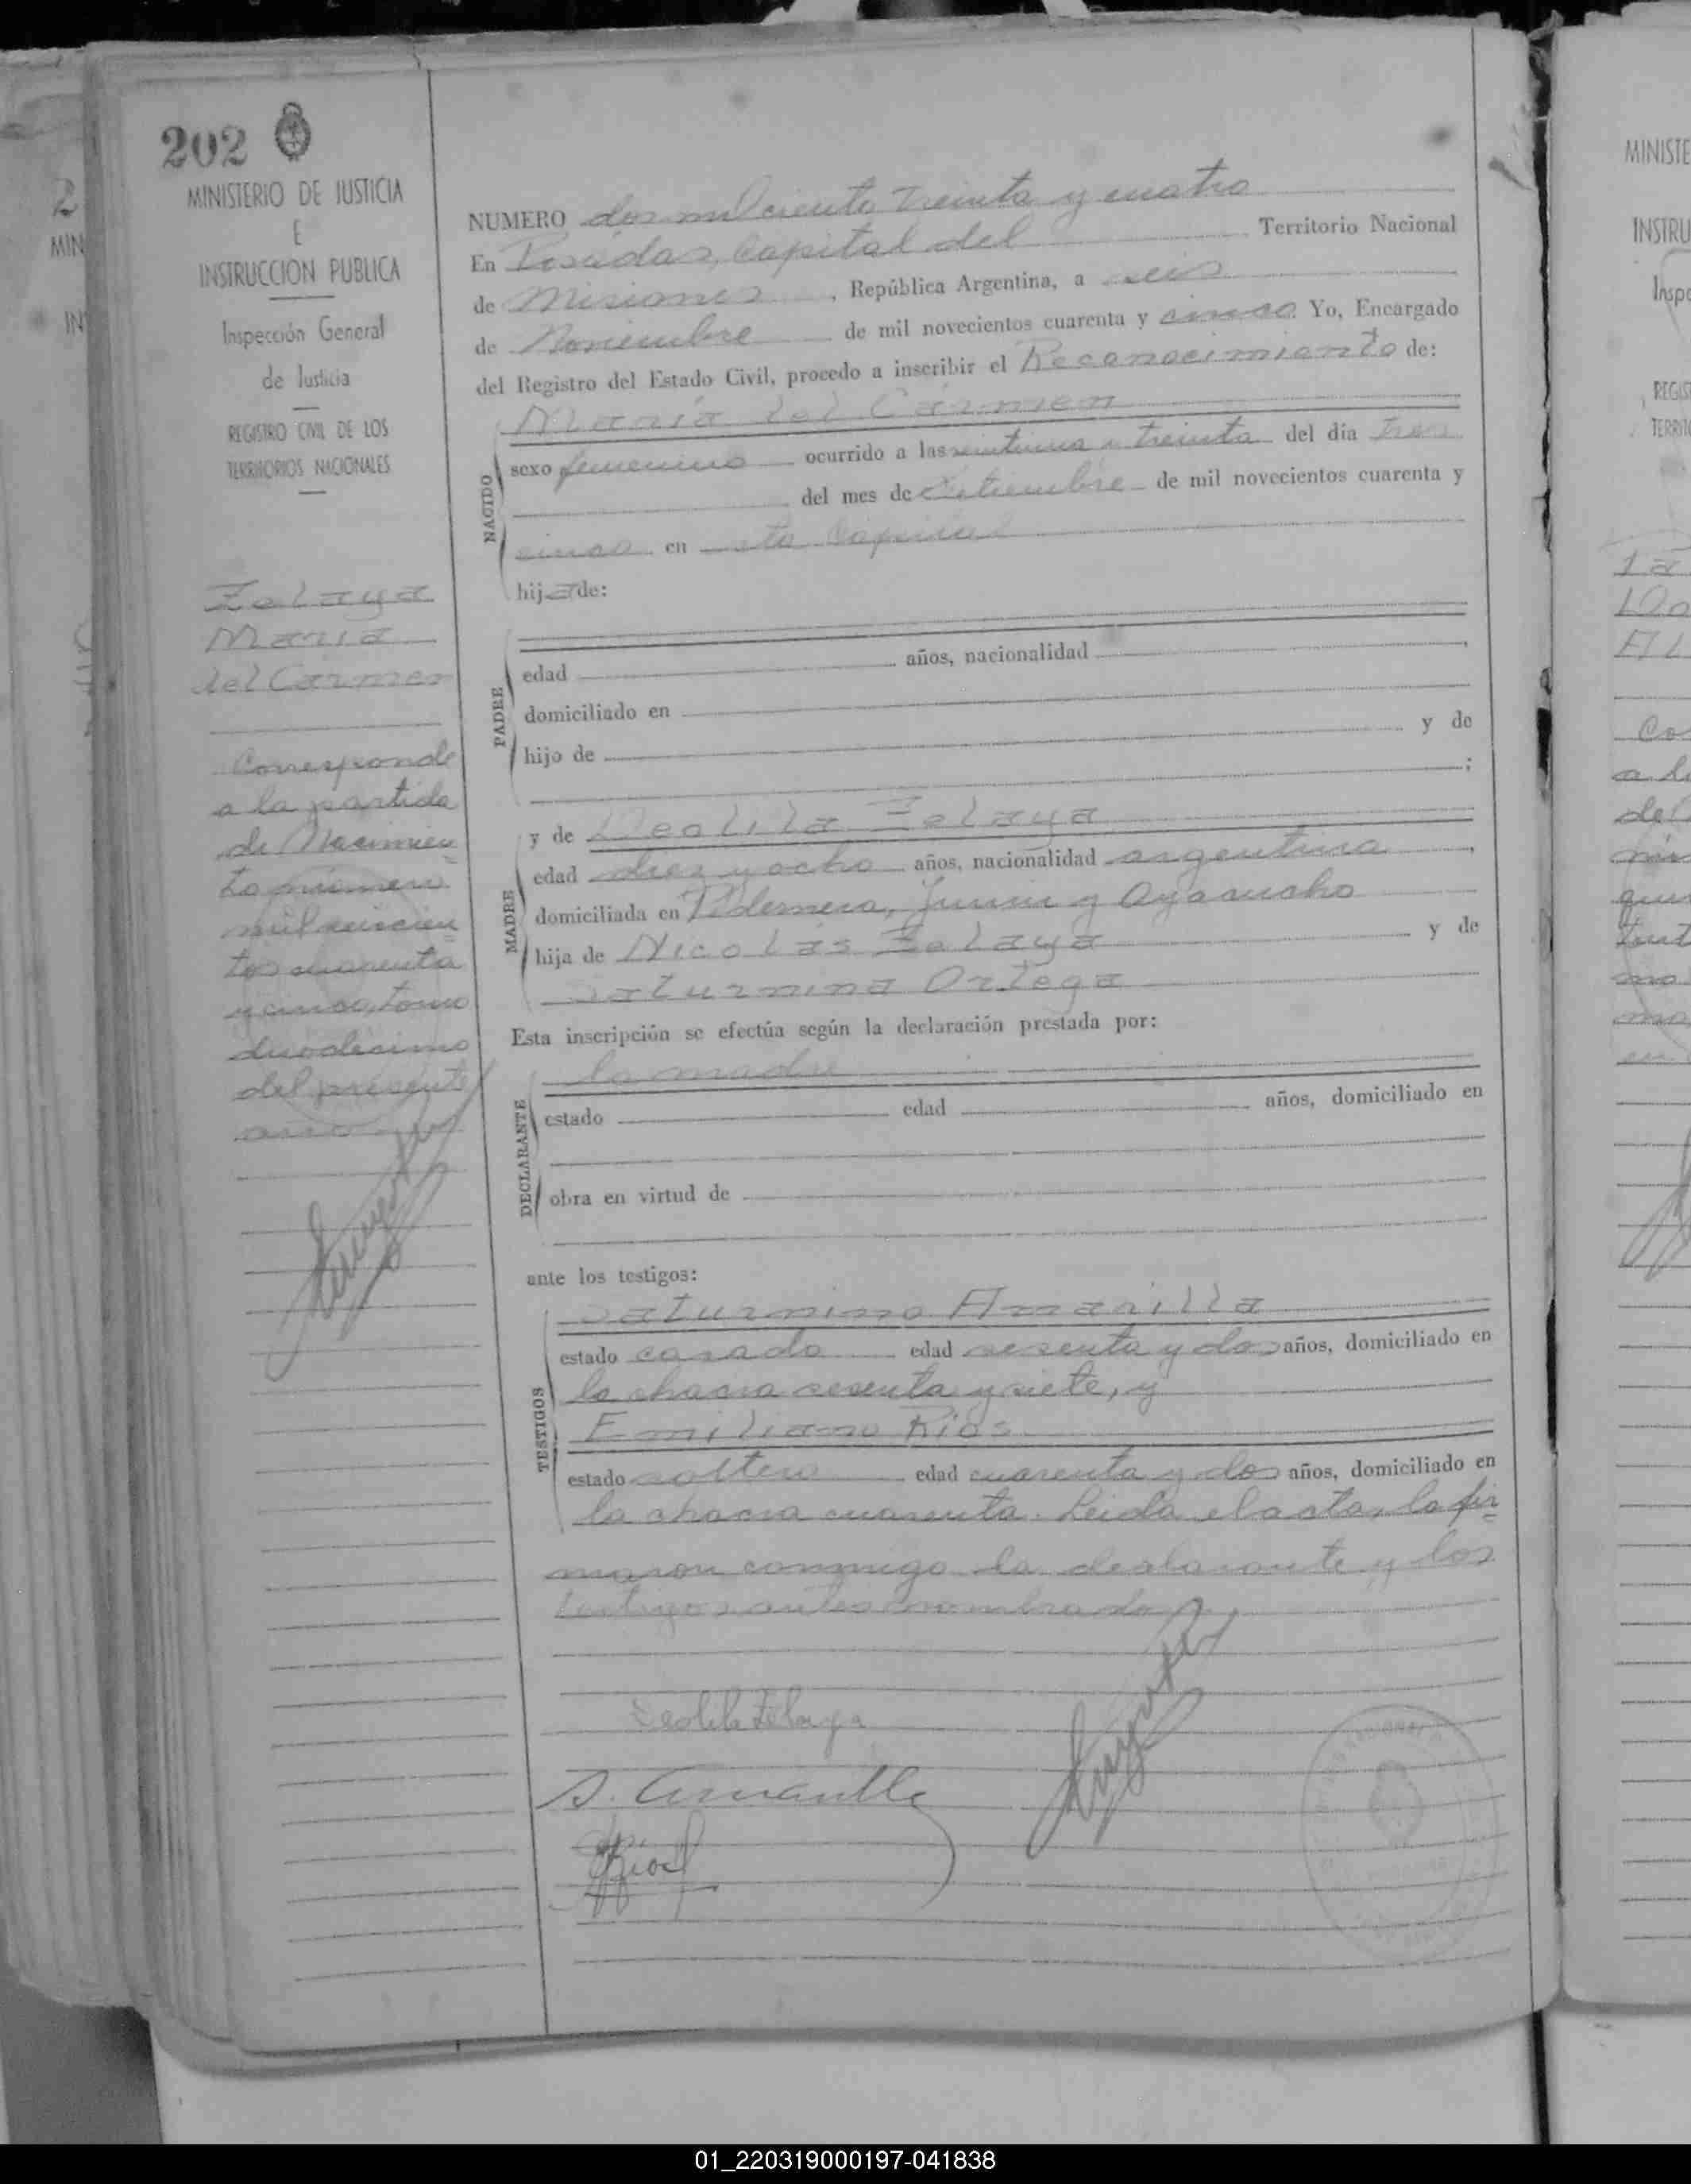 202
MINISTERIO DE JUSTICIA
E
INSTRUCCION PUBLICA
Inspección General
de Justicia
REGISTRO CIVIL DE LOS
TERRITORIOS NACIONALES
Zelaya
María
del Carmen
Corresponde
a la partida
de Nacimien=
to número
mil seiscien=
tos cuarenta
y cinco, tomo
duodécimo
del presente
año
NUMERO dos mil ciento treinta y cuatro
En Posadas, Capital del Territorio Nacional
de Misiones, República Argentina, a seis
de Noviembre de mil novecientos cuarenta y cinco Yo, Encargado
del Registro del Estado Civil, procedo a inscribir el Reconocimiento de:
María del Carmen
NACIDO
sexo femenino ocurrido a las veintiuna y treinta del día tres
del mes de Setiembre de mil novecientos cuarenta y
cinco en esta Capital
hija de:
PADRE
edad años, nacionalidad
domiciliado en
hijo de y de
;
MADRE
y de Deolila Zelaya
edad diez y ocho años, nacionalidad argentina,
domiciliada en Pedernera, Junín y Ayacucho
hija de Nicolás Zelaya y de
Saturnina Ortega
Esta inscripción se efectúa según la declaración prestada por:
DECLARANTE
la madre
estado edad años, domiciliado en
obra en virtud de
ante los testigos:
TESTIGOS
Saturnino Amarilla
estado casado edad sesenta y dos años, domiciliado en
la chacra sesenta y siete, y
Emiliano Ríos
estado soltero edad cuarenta y dos años, domiciliado en
la chacra cuarenta. Leida el acta, la fir=
maron conmigo la declarante y los
testigos antes nombrados
Deolila Zelaya
S. Amarilla
Rios
MINISTE
INSTRU
Inspe
REGIS
TERRIT
01_220319000197-041838